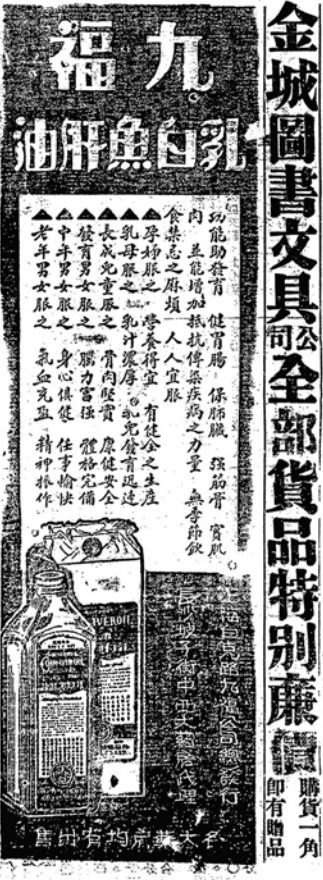 金城圖書文具公司全部貨品特別廉價
購貨一角
即有贈品
九福
乳白魚肝油
功能助發育 健胃腸 保肺臟 强筋骨 實肌
肉 並能增加抵抗傳染疾病之力量 無季節飲
食禁忌之麻煩 人人宜服
▲孕婦服之 營養得宜 有健全之生產
▲乳母服之 乳汁濃厚 乳兒發育迅速
▲長成兒童服之 骨肉堅實 康健安全
▲發育男女服之 腦力富强 體格完備
▲中年男女服之 身心俱健 任事愉快
▲老年男女服之 氣血充盈 精神振作
上海白克路九福公司總發行
長沙坡子街中西大藥房代理
各大藥房均有出售